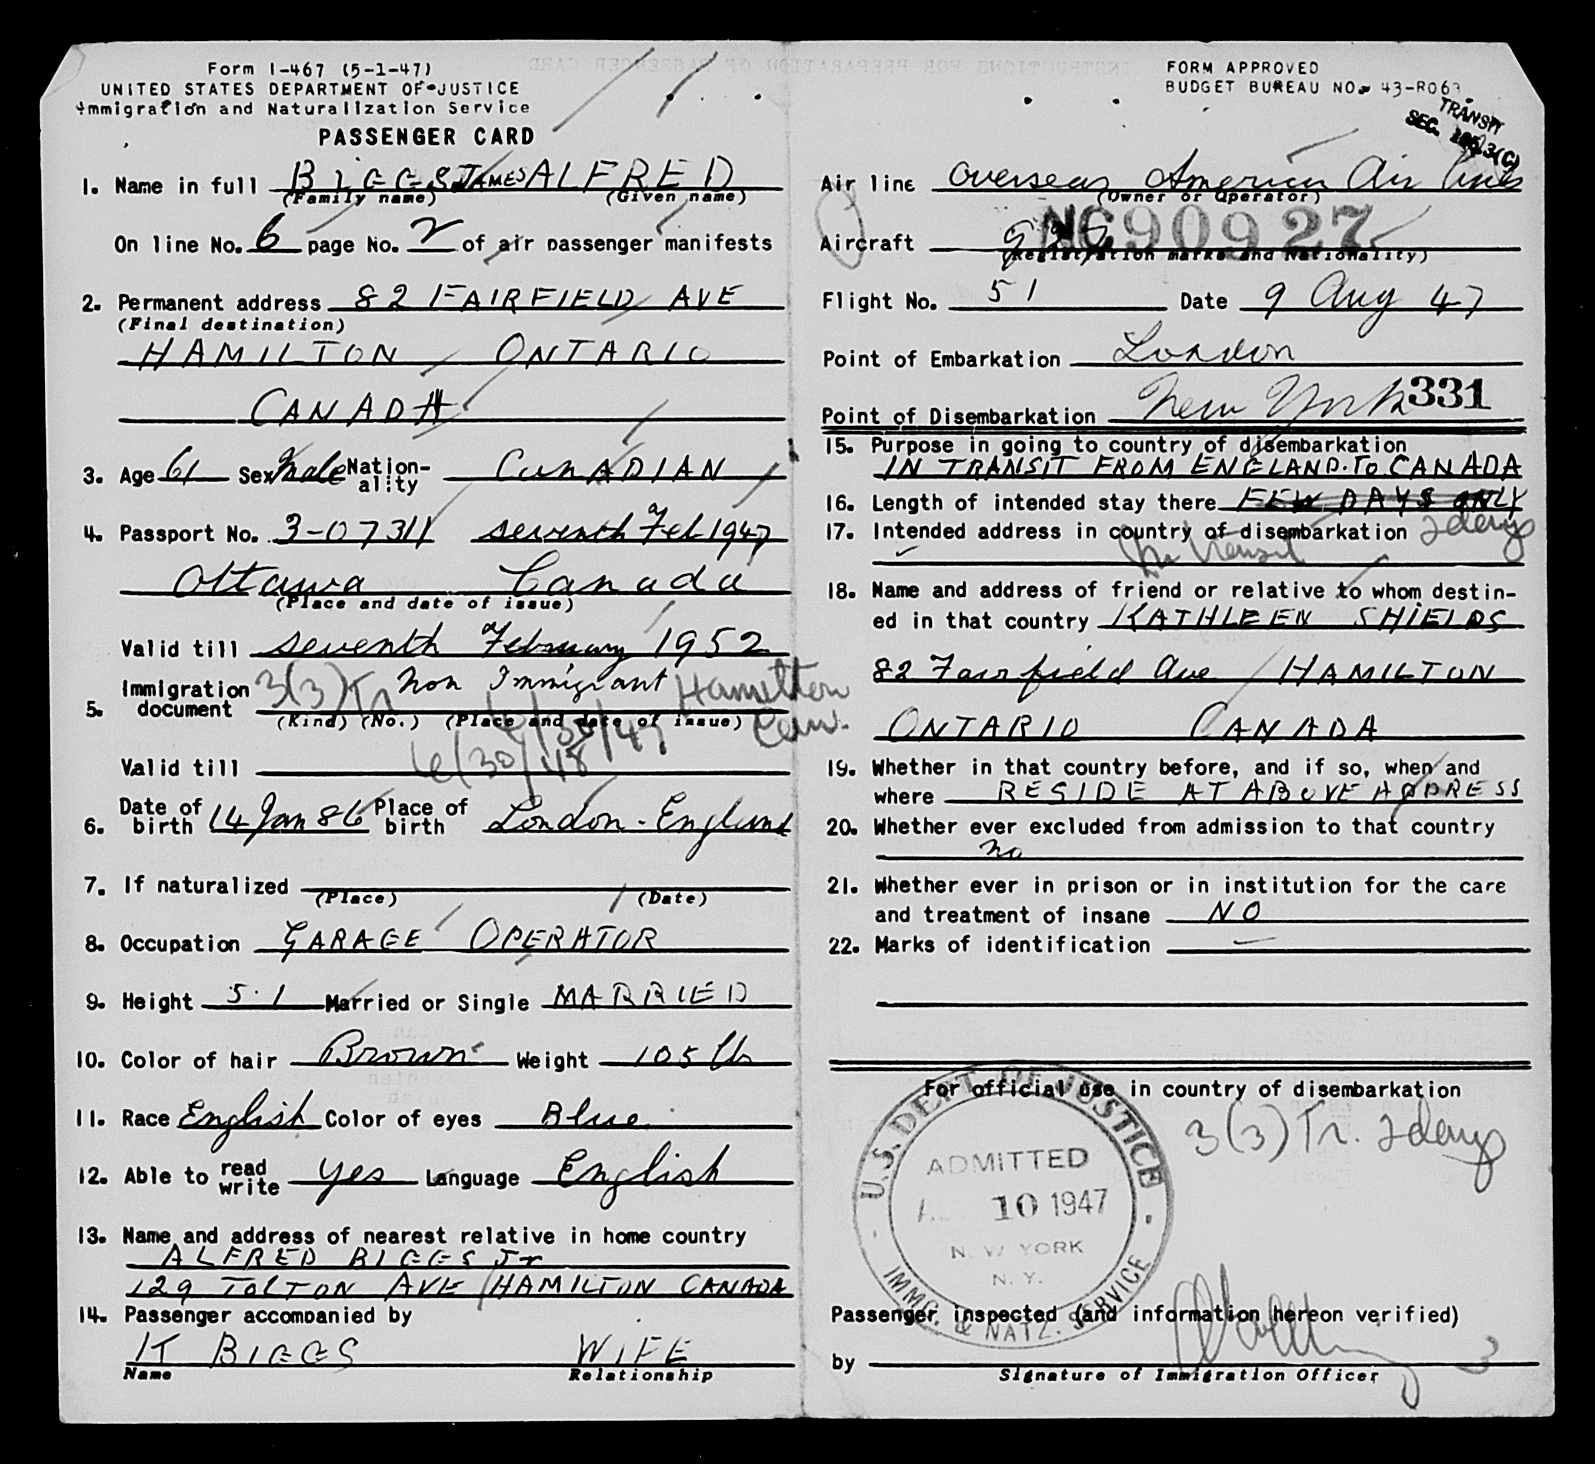 Form I-467 (5-1-47)
UNITED STATES DEPARTMENT OF JUSTICE
Immigration and Naturalization Service
PASSENGER CARD
1. Name in full BIGGS JAMES ALFRED
(Family name) (Given name)
On line No. 6 page No. 2 of air passenger manifests
2. Permanent address 82 FAIRFIELD AVE
(Final destination)
HAMILTON ONTARIO
CANADA
3. Age 61 Sex Male Nation-ality CANADIAN
4. Passport No. 3-07311 seventh Feb 1947
Ottawa Canada
(Place and date of issue)
Valid till seventh February 1952
5. Immigration document 3(3)Tr Non Immigrant Hamilton Can.
(Kind) (No.) (Place and date of issue)
Valid till 6/30/48
6. Date of birth 14 Jan 86 Place of birth London - England
7. If naturalized
(Place) (Date)
8. Occupation GARAGE OPERATOR
9. Height 5.1 Married or Single MARRIED
10. Color of hair Brown Weight 105 lb
11. Race English Color of eyes Blue
12. Able to read write yes Language English
13. Name and address of nearest relative in home country
ALFRED BIGGS Jr
129 TOLTON AVE HAMILTON CANADA
14. Passenger accompanied by
K BIGGS WIFE
Name Relationship
FORM APPROVED
BUDGET BUREAU NO. 43-R063.
TRANSIT
SEC. 3(C)
Air line Overseas American Air Lines
(Owner or Operator)
Aircraft 927 NC90927
(Registration marks and Nationality)
Flight No. 51 Date 9 Aug 47
Point of Embarkation London
Point of Disembarkation New York 331
15. Purpose in going to country of disembarkation
IN TRANSIT FROM ENGLAND. TO CANADA
16. Length of intended stay there FEW DAYS ONLY
17. Intended address in country of disembarkation 2 days
In transit
18. Name and address of friend or relative to whom destin-
ed in that country KATHLEEN SHIELDS
82 Fairfield Ave HAMILTON
ONTARIO CANADA
19. Whether in that country before, and if so, when and
where RESIDE AT ABOVE ADDRESS
20. Whether ever excluded from admission to that country
No
21. Whether ever in prison or in institution for the care
and treatment of insane NO
22. Marks of identification —
For official use in country of disembarkation
3(3) Tr. 2 days
U.S. DEPT. OF JUSTICE
ADMITTED
10 1947
NEW YORK
N. Y.
IMMG. & NATZ. SERVICE
Passenger inspected (and information hereon verified)
by
Signature of Immigration Officer